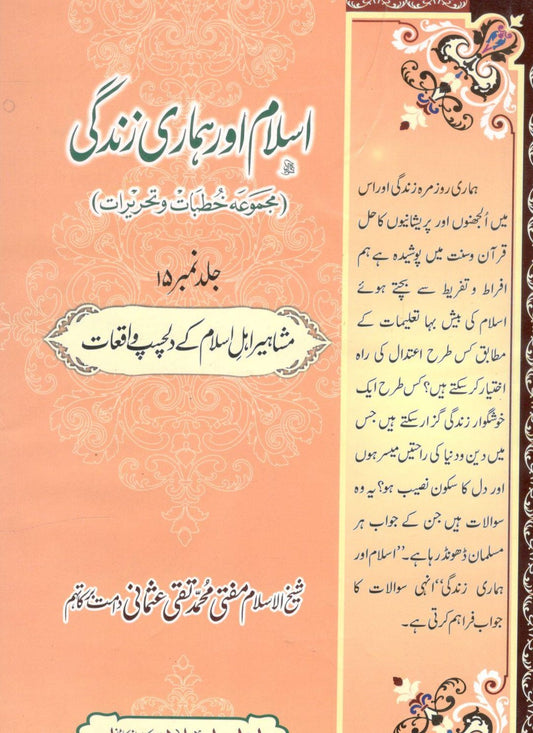 اسلام اور ہماری زندگی
(مجموعہ خطبات و تحریرات)
جلد نمبر ۱۵
مشاہیر اہل اسلام کے دلچسپ واقعات
شیخ الاسلام مفتی محمد تقی عثمانی دامت برکاتہم
ہماری روز مرہ زندگی اور اس
میں اُلجھنوں اور پریشانیوں کا حل
قرآن و سنت میں پوشیدہ ہے ہم
افراط و تفریط سے بچتے ہوئے
اسلام کی بیش بہا تعلیمات کے
مطابق کس طرح اعتدال کی راہ
اختیار کر سکتے ہیں؟ کس طرح ایک
خوشگوار زندگی گزار سکتے ہیں جس
میں دین و دنیا کی راحتیں میسر ہوں
اور دل کا سکون نصیب ہو؟ یہ وہ
سوالات ہیں جن کے جواب ہر
مسلمان ڈھونڈ رہا ہے۔ ’’اسلام اور
ہماری زندگی‘‘ انہی سوالات کا
جواب فراہم کرتی ہے۔